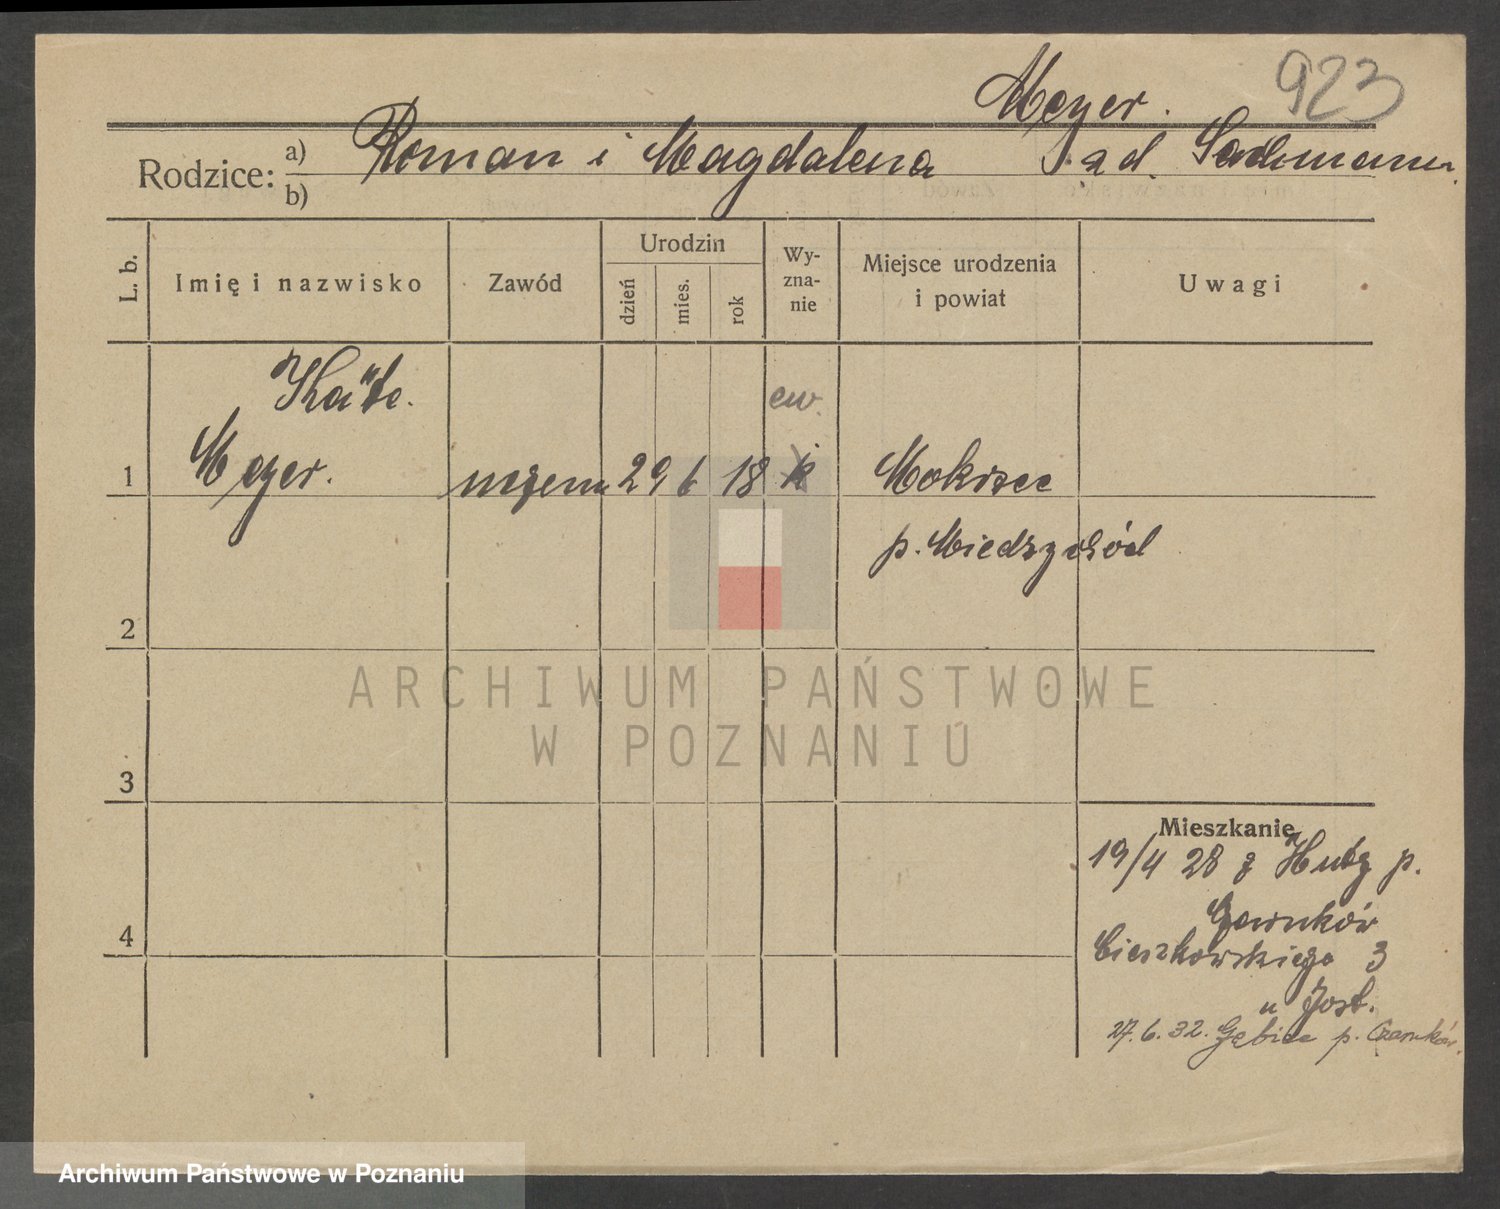 923
Meyer.
Rodzice: a) b) Roman i Magdalena
L. b.
Imię i nazwisko
Zawód
Urodzin
dzień
mies.
rok
Wy-
zna-
nie
Miejsce urodzenia
i powiat
Uwagi
Käte.
ew.
1 Meyer. uczenn 29 6 18 k Mokrzec
p. Miedzychód
2
3
4
Mieszkanie
19/4 28 z Huty p.
Czarnków
Cieszkowskiego 3
u Jost.
27.6.32. Gębice p. Czarnków.
ARCHIWUM PAŃSTWOWE
W POZNANIU
Archiwum Państwowe w Poznaniu